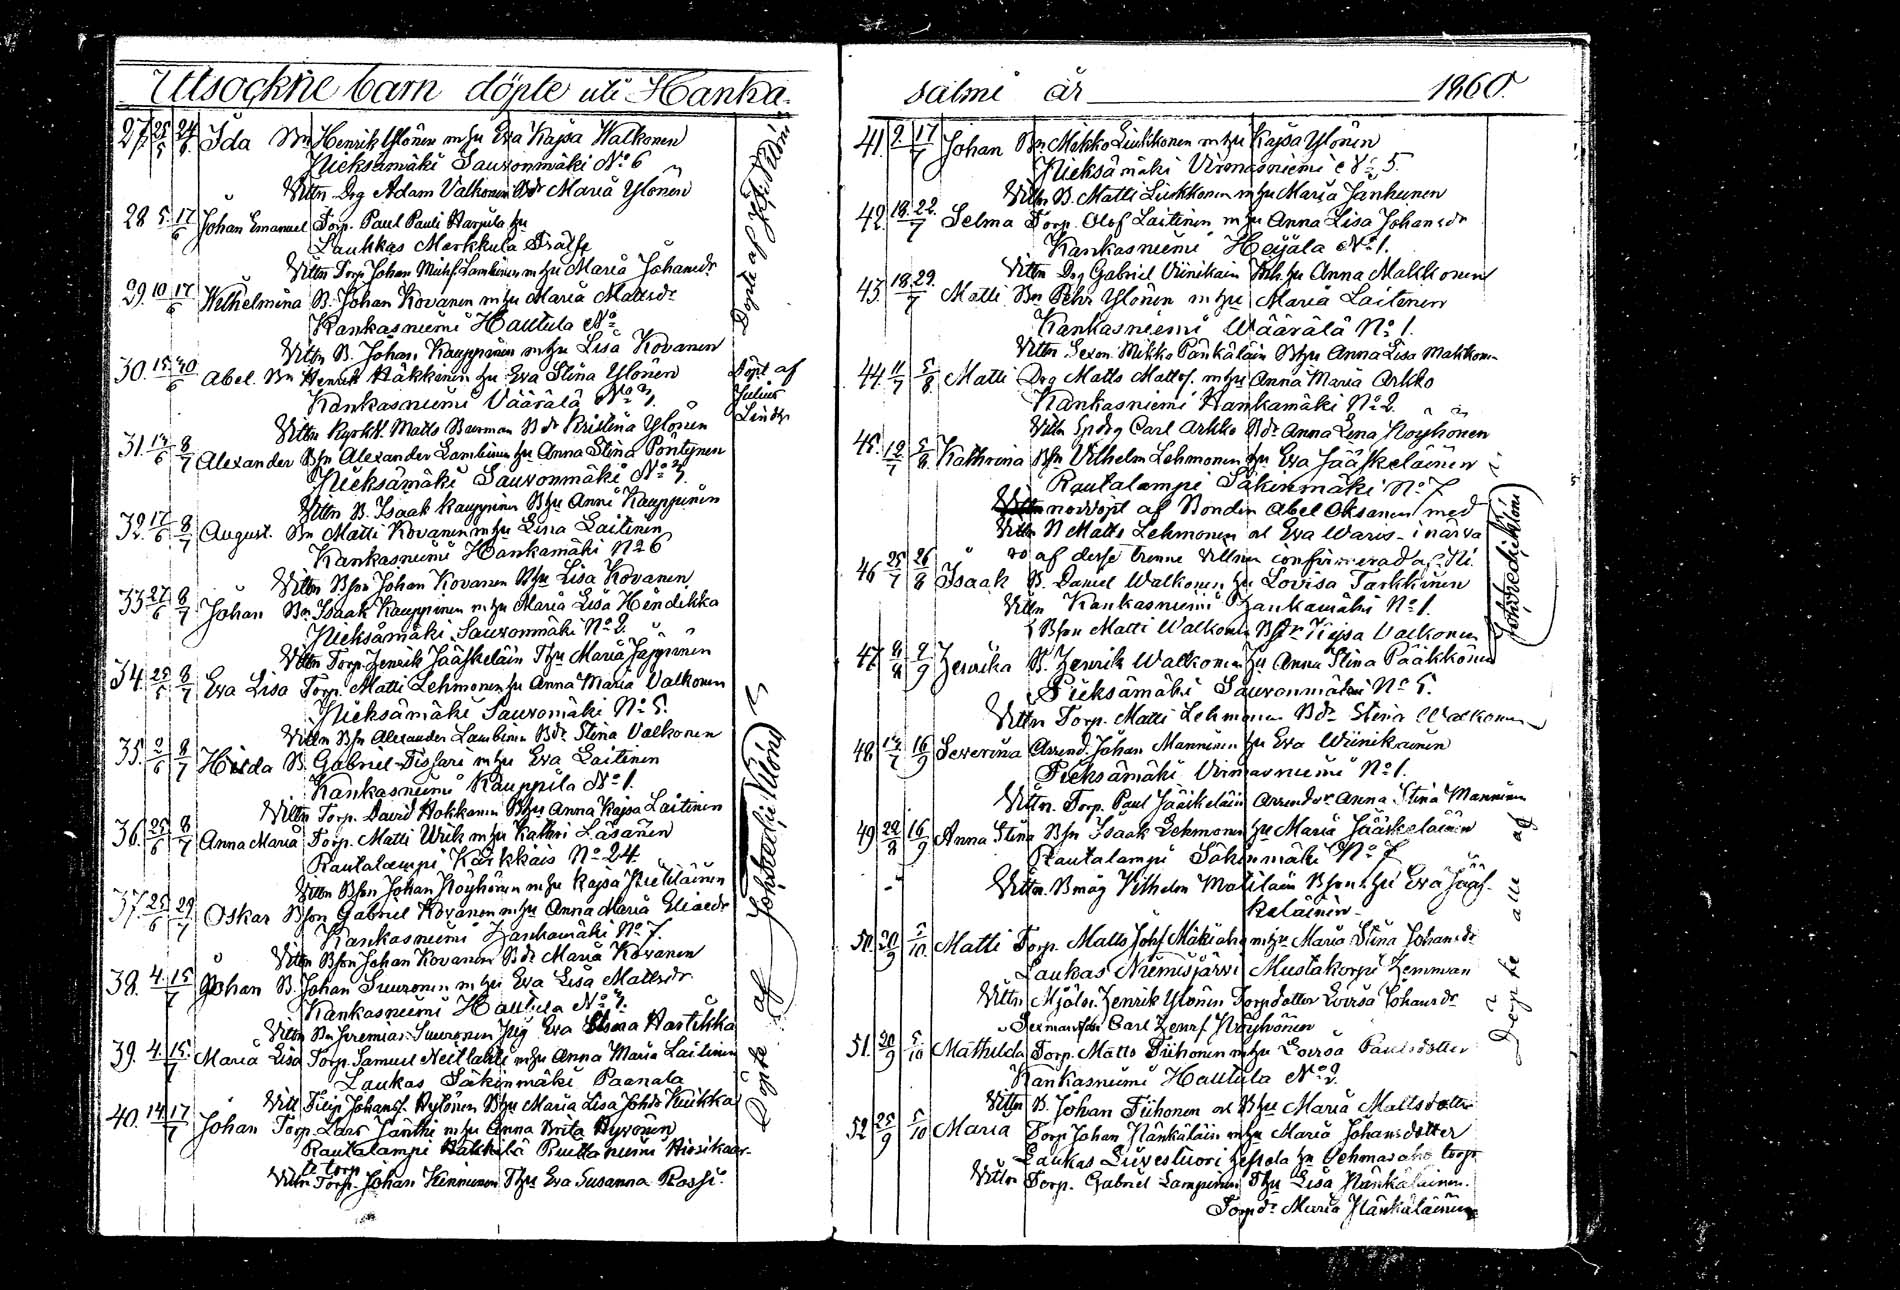 Utsockne barn döpte uti Hanka-
27. 25/5 24/6 Ida Bn Henrik Ylönen m hu Eva Kajsa Walkonen
Pieksämäki Sauronmäki No 6
Vittn Drg Adam Valkonen Bdr Maria Ylönen
28 5 17/6 Johan Emanuel Torp. Paul Pauli Harjula hu
Laukkas Merkkula
Vittn Torp Johan Lambinen m hu Maria Johansdr
29. 10 17/6 Wilhelmina B. Johan Kovanen m hu Maria Mattsdr
Kankasniemi Hautula No
Vittn B. Johan Kauppinen m hu Lisa Kovanen
30. 15 /6 Abel Bn Henrik Häkkinen hu Eva Stina Ylönen
Kankasniemi Väärälä No 1.
Vittn Matts Barman Bdr Kristina Ylönen
31. /6 8/7 Alexander Bsn Alexander Lambinen hu Anna Stina Pöntynen
Pieksämäki Sauronmäki No
Vittn B. Isaak Kauppinen Bhu Anni Kauppinen
32. 17/6 8/7 August. Bn Matti Kovanen m hu Lisa Laitinen
Kankasniemi Hankamäki No 6
Vittn Bson Johan Kovanen Bhu Lisa Kovanen
33 27/6 8/7 Johan Bn Isaak Kauppinen m hu Maria Lisa Hindikka
Pieksämäki Sauronmäki No 2.
Vittn Torp. Henrik Jääskeläin Thu Maria Jäppinen
34. 25/5 8/7 Eva Lisa Torp. Matti Lehmonen hu Anna Maria Valkonen
Pieksämäki Sauromäki No 5.
Vittn Bsn Alexander Lambinen Bdr Stina Valkonen
35. 2/6 8/7 Hilda B. Gabriel Tissari m hu Eva Laitinen
Kankasniemi Kauppila No 1.
Vittn Torp. David Hokkanen Bhu Anna Kajsa Laitinen
36. 25/6 8/7 Anna Maria Torp. Matti Wick m hu Kathri Läsänen
Rautalampi Kärkkäis No 24.
Vittn Bson Johan Pöyhönen m hu Kajsa Pietiläinen
37. 25/6 29/7 Oskar Bson Gabriel Kovanen m hu Anna Maria Eliaedr
Kankasniemi Hankamäki No 7
Vittn Bson Johan Kovanen Bdr Maria Kovanen
38. 4. 15/7 Johan B. Johan Suuronen m hu Eva Lisa Mattsdr
Kankasniemi Hautula No 2.
Vittn Bn Jeremias Suuronen Eva Stina Hartikka
39. 4. 15/7 Maria Lisa Torp. Samuel Neitlahti m hu Anna Maria Laitinen
Laukas Säkinmäki Paanala
Vitt Filip Johansf. Hytönen Bhu Maria Lisa Johdr Kuikka
40. 14 17/7 Johan Torp. Lars Janthi m hu Anna Brita Hyvönen
Rautalampi Hankala
te torp
Vittn Torp. Johan Kinnunen Thu Eva Susanna Rossi.
Döpt af
Julius
Linder
Döpte af Joh: Bedis: Klóni
salmi år 1860.
41. 2. 17/7 Johan Bn Mikko Liukkonen m hu Kajsa Ylönen
Pieksämäki Virmasniemi No 5.
Vittn B. Matti Liukkonen m hu Maria Janhunen
42. 18. 22./7 Selma Torp. Olof Laitinen m hu Anna Lisa Johansdr
Kankasniemi Heijala No 1.
Vittn Drg Gabriel Viinikain hu Anna Makkonen
43. 18. 29./7 Matti Bn Pehr Ylönen m hu Maria Laitinen
Kankasniemi Wäärälä No 1.
Vittn Sexm. Mikko Pänkäläin Bhu Anna Lisa Makkonen
44. 11/7 5/8. Matti Drg Matts Mattsf. m hu Anna Maria Arkko
Kankasniemi Hankamäki No 2.
Vittn Spdrg Carl Arkko Bdr Anna Lena Pöyhönen
45. 12/7 5/8. Kathrina Bsn Vilhelm Lehmonen hu Eva Jääskeläinen
Rautalampi Säkinmäki No 7
nöddöpt af Bonden Abel Oksanen med
Vittn B Matts Lehmonen ol Eva Waris i närva
ro af desse trenne vittnen confirmerad af
46 25/7 26/8 Isaak B. Daniel Walkonen hu Lovisa Tarkkinen
Vittn Kankasniemi Hankamäki No 1.
Bson Matti Walkonen Bdr Kajsa Valkonen
47. 2/9 Henrika B. Henrik Walkonen hu Anna Stina Pääkkönen
Pieksämäki Sauronmäki No 5.
Vittn Torp. Matti Lehmonen Bdr Stina Walkonen
48. /7 16/9 Severina Arrend. Johan Manninen hu Eva Wiinikainen
Pieksämäki Virmasniemi No 1.
Vittn. Torp. Paul Jääskeläin Arrenddr Anna Stina Manninen
49 22/8 16/9 Anna Stina Bsn Isaak Lehmonen hu Maria Jääskeläinen
Rautalampi Säkinmäki No 7
Vittn. Bmåg Vilhelm Matilain Bson hu Eva Jääs-
keläinen
50. 20/9 /10. Matti Torp. Matts Johs Mäkiaho m hu Maria Stina Johansdr
Laukas Niemisjärvi Mustakorpi Hemman
Vittn Mjöln. Henrik Ylönen Torpdotter Lovisa Johansdr
Sexmansson Carl Henrs Pöyhönen
51. 20/9 5/10 Mathilda Torp. Matts Tiihonen m hu Lovisa Paulsdotter
Kankasniemi Hautula No 2.
Vittn B. Johan Tiihonen ol Bhu Maria Mattsdotter
52 25/9 5/10 Maria Torp Johan Pänkäläin m hu Maria Johansdotter
Laukas Lievestuori Lehmasaho torp
Vittn Torp. Gabriel Lampinen Thu Lisa Pänkäläinen.
Torpdr Maria Pänkäläinen
Döpte alle af